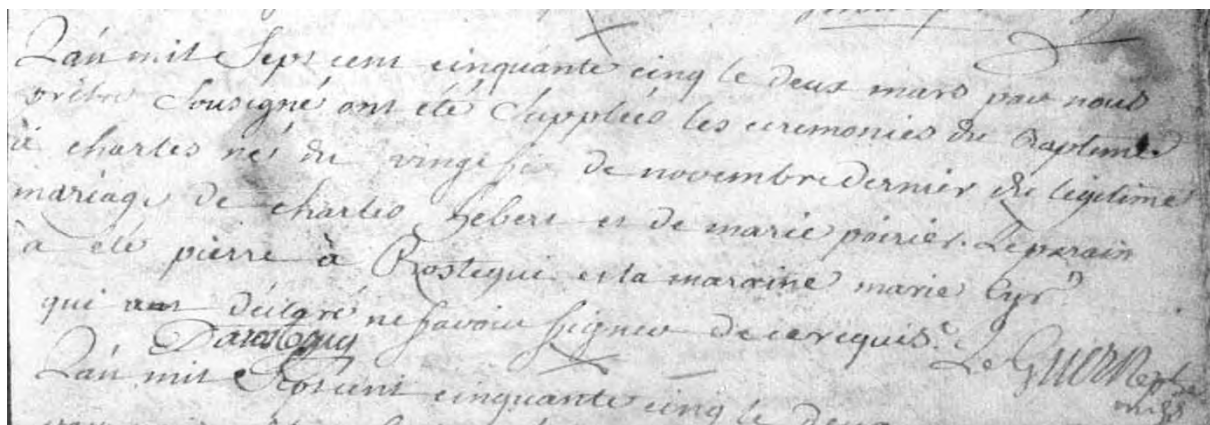 L'an mil Sept cent cinquante cinq le deux mars par nous
prêtre Sousigné ont été Supplées les ceremonies du Baptême
à charles né du vingt six de novembre dernier du légitime
mariage de charles hebert et de marie poirier. Le parain
a été pierre à Rostegui et la maraine marie Cyr
qui ont déclaré ne savoir signer de ce requis.
Darosteguy Le Guerne ptre
miss
L'an mil Sept cent cinquante cinq le deux